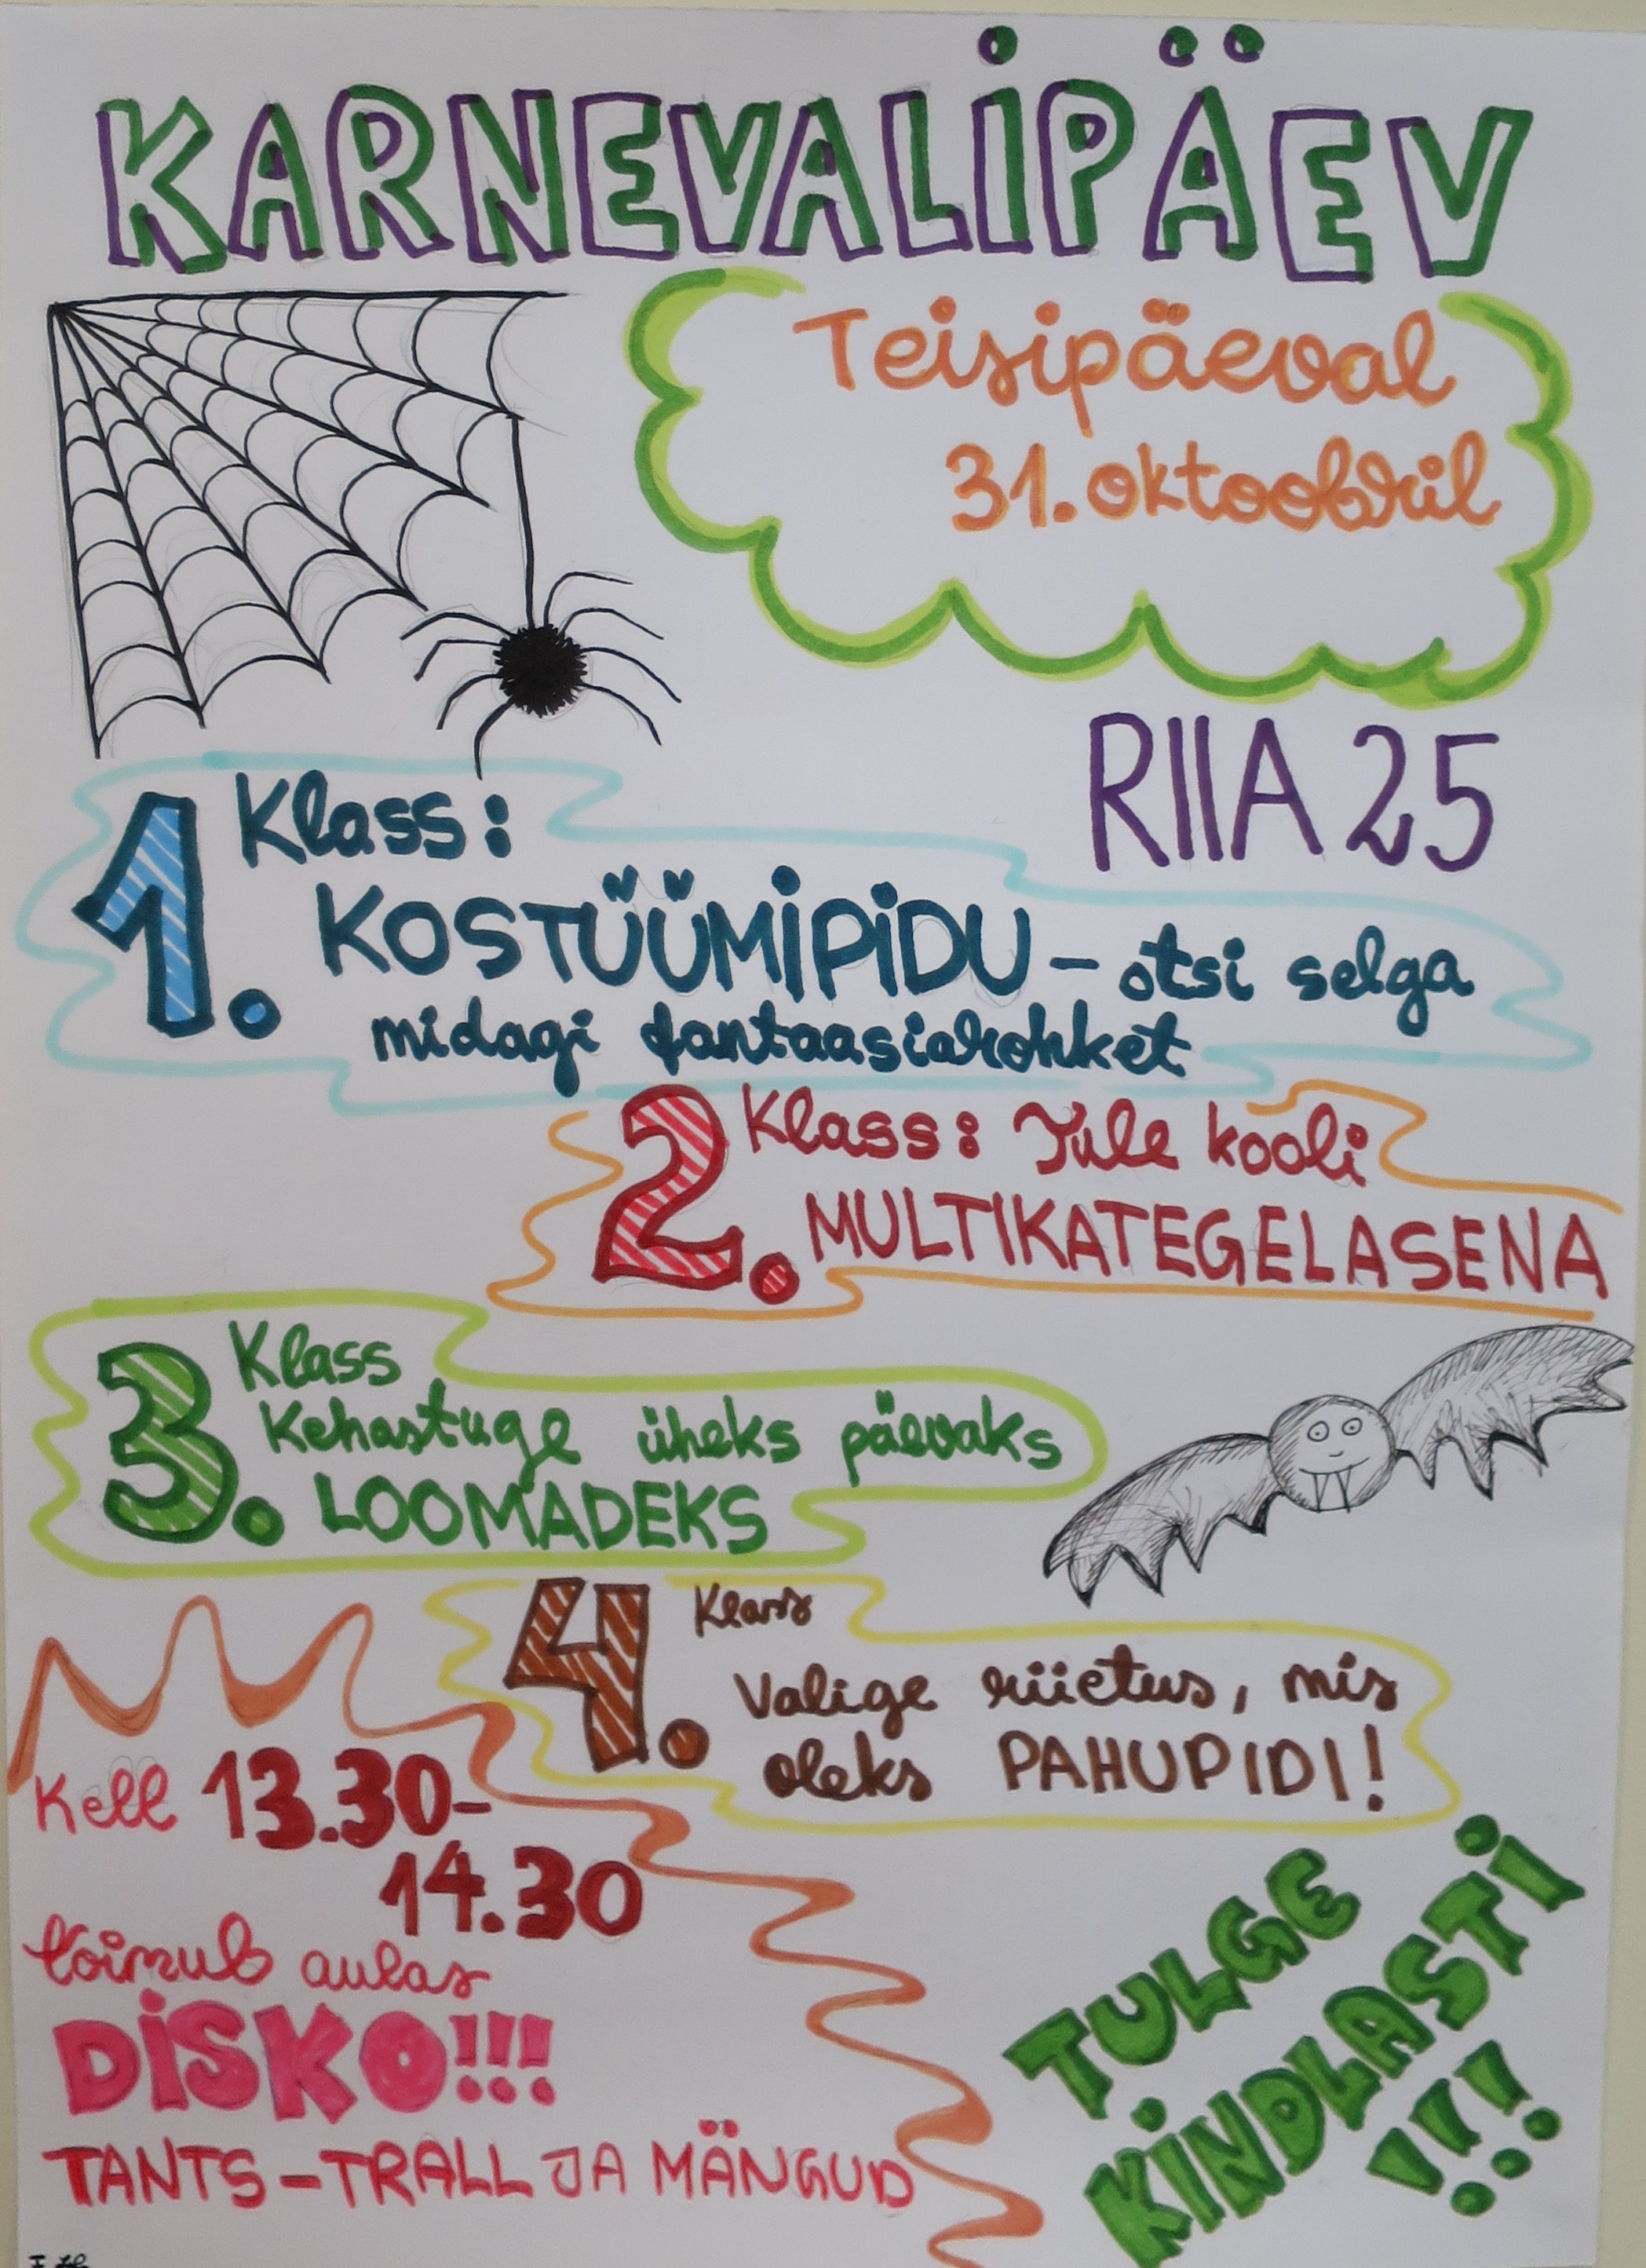 KARNEVALIPÄEV
Teisipäeval
31. oktoobril
RIIA 25
1. Klass:
KOSTÜÜMIPIDU – otsi selga
midagi fantaasiarohket
2. Klass: Tule kooli
MULTIKATEGELASENA
3. Klass
Kehastuge üheks päevaks
LOOMADEKS
4. Klass
Valige riietus, mis
oleks PAHUPIDI!
Kell 13.30-
14.30
toimub aulas
DISKO!!!
TANTS-TRALL JA MÄNGUD
TULGE
KINDLASTI
!!!